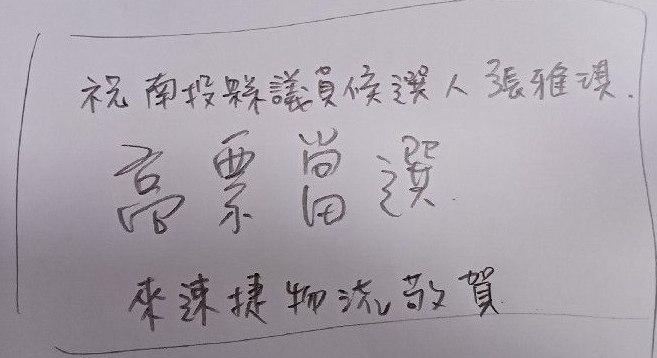 祝南投縣議員候選人張雅琪.
高票當選.
來速捷物流敬賀